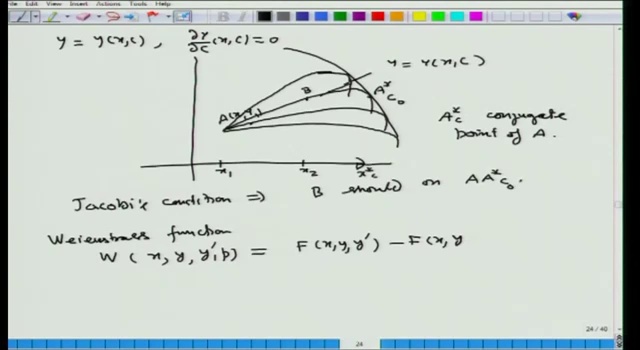 Edit View Insert Actions Tools Help
y = y(x,c) , ∂y/∂c (x,c) = 0
y = y(x,c)
A*c₀
B
A(x₁,y₁)
A*c conjugate
point of A.
x₁ x₂ x*c
Jacobi's condition ⇒ B should on AA*c₀.
Weierstrass function
W(x, y, y', p) = F(x,y,y') - F(x,y
24 / 40
24